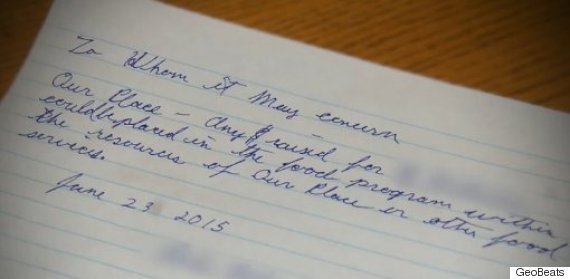 To Whom it May concern
Our Place - Any $ raised for
could be placed in the food program within
the resources of Our Place or other food
services.
June 23 2015
GeoBeats